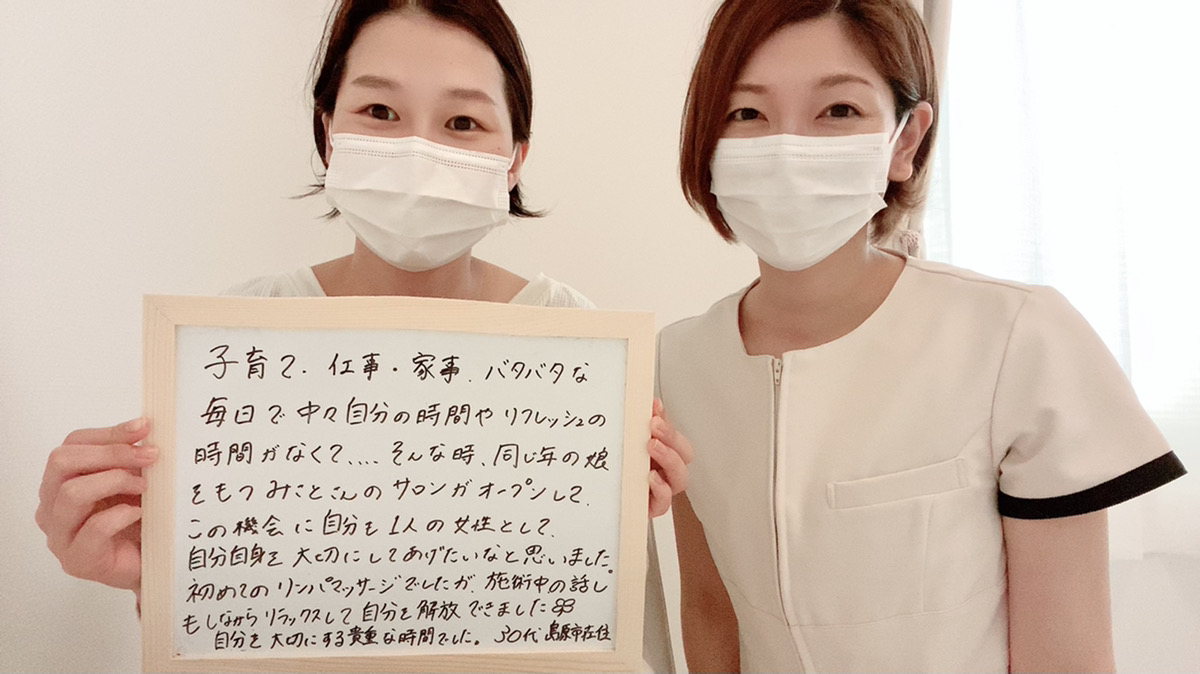 子育て、仕事・家事、バタバタな
毎日で中々自分の時間やリフレッシュの
時間がなくて、、、、そんな時、同じ年の娘
をもつみことさんのサロンがオープンして、
この機会に自分も1人の女性として、
自分自身を大切にしてあげたいなと思いました。
初めてのリンパマッサージでしたが、施術中の話し
もしながらリラックスして自分を解放できました
自分を大切にする貴重な時間でした。 30代 島原市在住